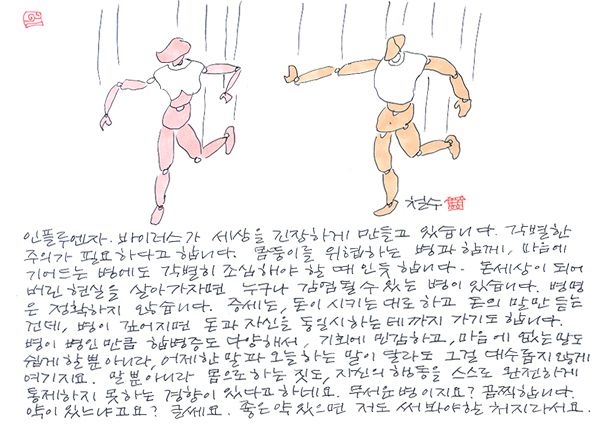 철수
인플루엔자. 바이러스가 세상을 긴장하게 만들고 있습니다. 각별한
주의가 필요하다고 합니다. 몸뚱이를 위협하는 병과 함께, 마음에
기어드는 병에도 각별히 조심해야 할 때인듯 합니다. 돈세상이 되어
버린 현실을 살아가자면 누구나 감염될 수 있는 병이 있습니다. 병명
은 정확하지 않습니다. 증세는, 돈이 시키는 대로 하고 돈의 말만 듣는
건데, 병이 깊어지면 돈과 자신을 동일시하는 데까지 가기도 합니다.
병이 병인 만큼 합병증도 다양해서, 기회에 민감하고, 마음에 없는 말도
쉽게 할 뿐 아니라, 어제 한 말과 오늘 하는 말이 달라도 그걸 대수롭지 않게
여기지요. 말뿐 아니라 몸으로 하는 짓도, 자신의 행동을 스스로 완전하게
통제하지 못하는 경향이 있다고 하네요. 무서운 병이지요? 끔찍합니다.
약이 있느냐고요? 글쎄요. 좋은 약 있으면 저도 써봐야 할 처지라서요.